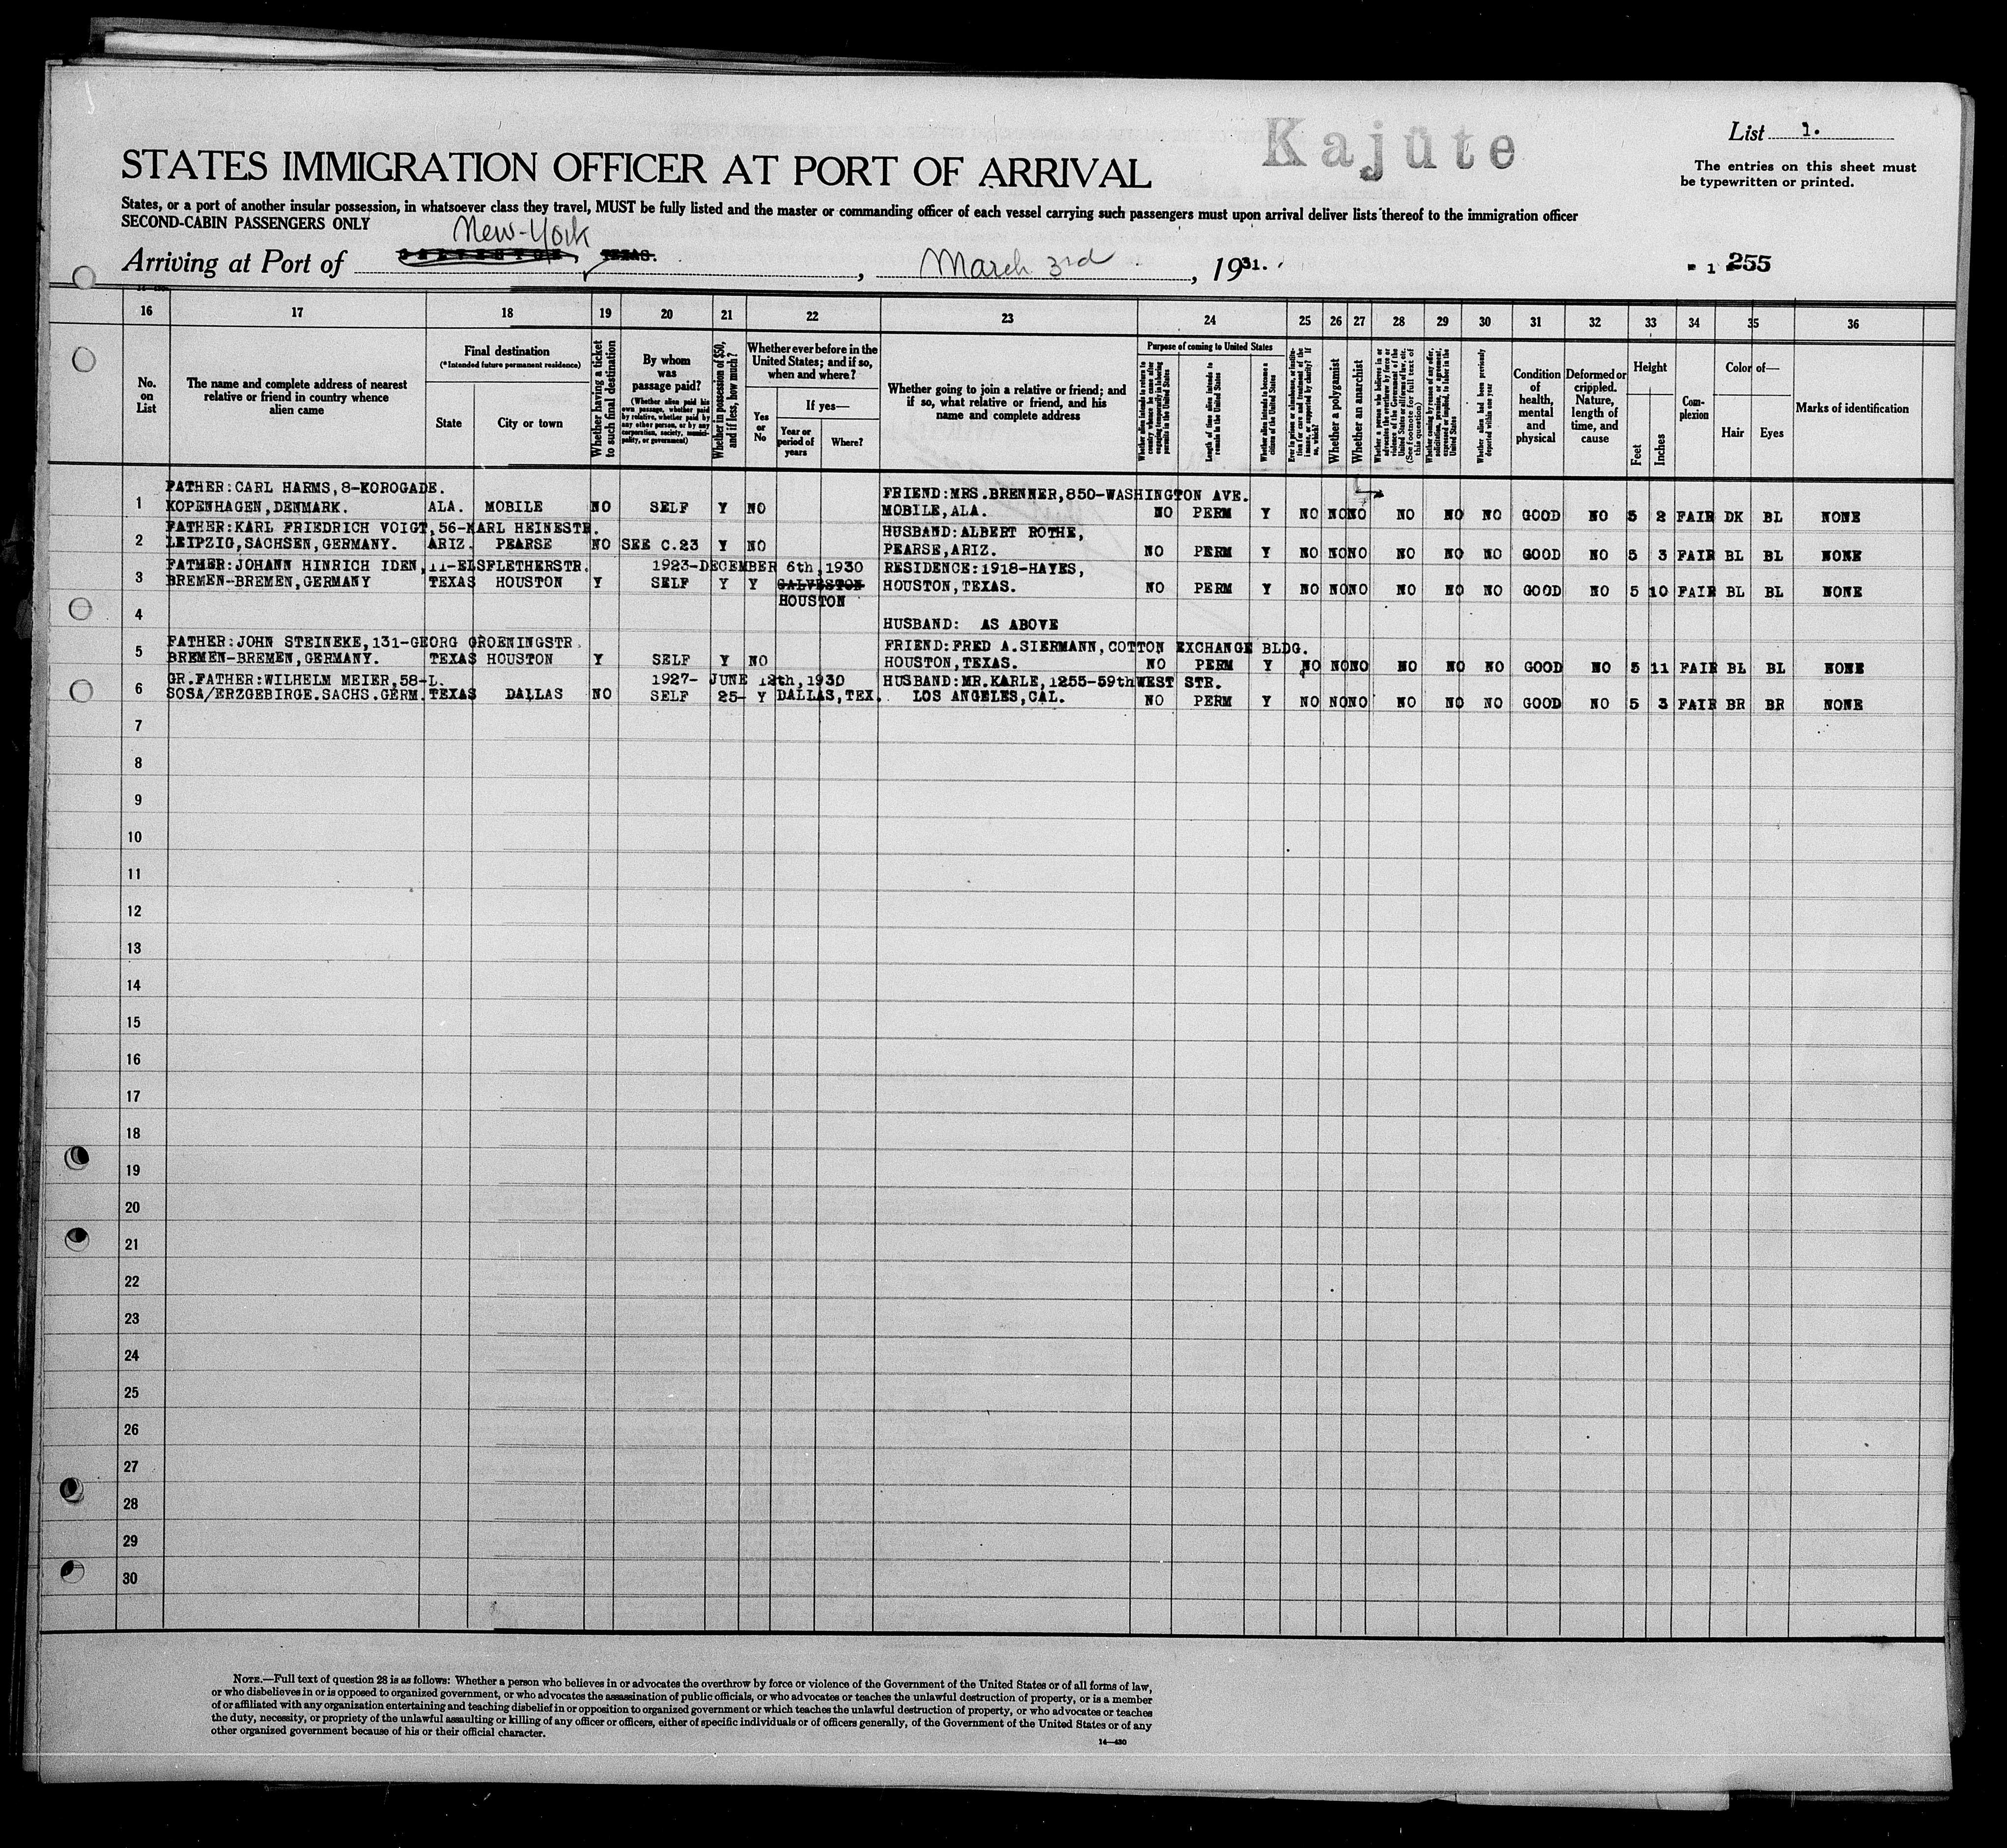 Kajüte
List 1.
STATES IMMIGRATION OFFICER AT PORT OF ARRIVAL
The entries on this sheet must
be typewritten or printed.
States, or a port of another insular possession, in whatsoever class they travel, MUST be fully listed and the master or commanding officer of each vessel carrying such passengers must upon arrival deliver lists thereof to the immigration officer
SECOND-CABIN PASSENGERS ONLY
New-York
Arriving at Port of GALVESTON, TEXAS. , March 3rd , 1931.
- 1 - 255
16 17 18 19 20 21 22 23 24 25 26 27 28 29 30 31 32 33 34 35 36
No.
on
List
The name and complete address of nearest
relative or friend in country whence
alien came
Final destination
(*Intended future permanent residence)
State
City or town
Whether having a ticket
to such final destination
By whom
was
passage paid?
(Whether alien paid his
own passage, whether paid
by relative, whether paid by
any other person, or by any
corporation, society, munici-
pality, or government)
Whether in possession of $50,
and if less, how much?
Whether ever before in the
United States; and if so,
when and where?
Yes
or
No
If yes—
Year or
period of
years
Where?
Whether going to join a relative or friend; and
if so, what relative or friend, and his
name and complete address
Purpose of coming to United States
Whether alien intends to return to
country whence he came after
engaging temporarily in laboring
pursuits in the United States
Length of time alien intends to
remain in the United States
Whether alien intends to become a
citizen of the United States
Ever in prison or almshouse, or institu-
tion for care and treatment of the
insane, or supported by charity? If
so, which?
Whether a polygamist
Whether an anarchist
Whether a person who believes in or
advocates the overthrow by force or
violence of the Government of the
United States or all forms of law, etc.
(See footnote for full text of
this question)
Whether coming by reason of any offer,
solicitation, promise, or agreement,
expressed or implied, to labor in the
United States
Whether alien had been previously
deported within one year
Condition
of
health,
mental
and
physical
Deformed or
crippled.
Nature,
length of
time, and
cause
Height
Feet
Inches
Com-
plexion
Color of—
Hair
Eyes
Marks of identification
FATHER:CARL HARMS,8-KOROGADE. FRIEND:MRS.BRENNER,850-WASHINGTON AVE.
1 KOPENHAGEN,DENMARK. ALA. MOBILE NO SELF Y NO MOBILE,ALA. NO PERM Y NO NO NO NO NO NO GOOD NO 5 2 FAIR DK BL NONE
FATHER:KARL FRIEDRICH VOIGT,56-KARL HEINESTR. HUSBAND:ALBERT ROTHE,
2 LEIPZIG,SACHSEN,GERMANY. ARIZ. PEARSE NO SEE C.23 Y NO PEARSE,ARIZ. NO PERM Y NO NO NO NO NO NO GOOD NO 5 3 FAIR BL BL NONE
FATHER:JOHANN HINRICH IDEN,11-ELSFLETHERSTR. 1923-DECEMBER 6th,1930 RESIDENCE:1918-HAYES,
3 BREMEN-BREMEN,GERMANY TEXAS HOUSTON Y SELF Y Y GALVESTON HOUSTON,TEXAS. NO PERM Y NO NO NO NO NO NO GOOD NO 5 10 FAIR BL BL NONE
HOUSTON
4 HUSBAND: AS ABOVE
FATHER:JOHN STEINEKE,131-GEORG GROENINGSTR. FRIEND:FRED A.SIERMANN,COTTON EXCHANGE BLDG.
5 BREMEN-BREMEN,GERMANY. TEXAS HOUSTON Y SELF Y NO HOUSTON,TEXAS. NO PERM Y NO NO NO NO NO NO GOOD NO 5 11 FAIR BL BL NONE
GR.FATHER:WILHELM MEIER,58-L. 1927- JUNE 12th,1930 HUSBAND:MR.KARLE,1255-59thWEST STR.
6 SOSA/ERZGEBIRGE.SACHS.GERM. TEXAS DALLAS NO SELF 25- Y DALLAS,TEX. LOS ANGELES,CAL. NO PERM Y NO NO NO NO NO NO GOOD NO 5 3 FAIR BR BR NONE
7
8
9
10
11
12
13
14
15
16
17
18
19
20
21
22
23
24
25
26
27
28
29
30
NOTE.—Full text of question 28 is as follows: Whether a person who believes in or advocates the overthrow by force or violence of the Government of the United States or of all forms of law,
or who disbelieves in or is opposed to organized government, or who advocates the assassination of public officials, or who advocates or teaches the unlawful destruction of property, or is a member
of or affiliated with any organization entertaining and teaching disbelief in or opposition to organized government or which teaches the unlawful destruction of property, or who advocates or teaches
the duty, necessity, or propriety of the unlawful assaulting or killing of any officer or officers, either of specific individuals or of officers generally, of the Government of the United States or of any
other organized government because of his or their official character.
14—430